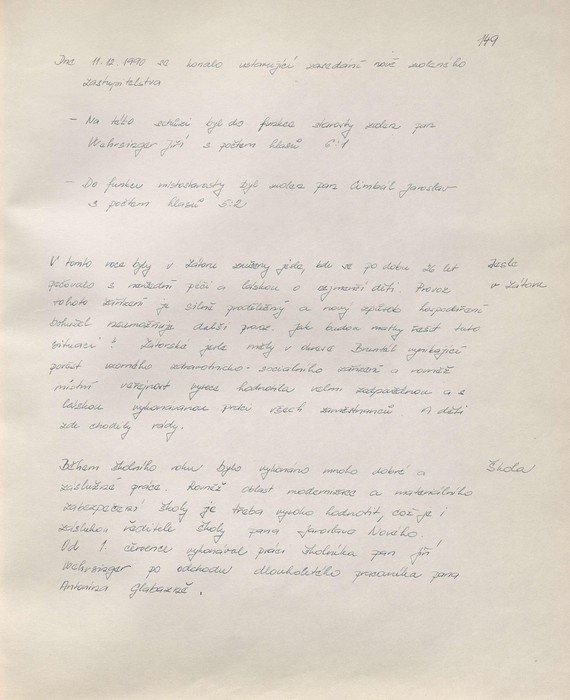 149
Dne 11.12.1990 se konalo ustavující zasedání nově zvoleného
zastupitelstva
- Na této schůzi byl do funkce starosty zvolen pan
Wehrsinger Jiří s počtem hlasů 6:1
- Do funkce místostarosty byl zvolen pan Cimbal Jaroslav
s počtem hlasů 5:2
V tomto roce byly v Zátoru zrušeny jesle, kde se po dobu 26 let Jesle
pečovalo s neobyčejnou péčí a láskou o nejmenší děti. Provoz v Zátoru
tohoto zařízení je silně prodělečný a nový způsob hospodaření
bohužel neumožňuje další provoz. Jak budou matky řešit tuto
situaci? Zátorské jesle měly v okrese Bruntál vynikající
pověst vzorného zdravotnicko-sociálního zařízení a rovněž
místní veřejnost vysoce hodnotila velmi zodpovědnou a s
láskou vykonávanou práci všech zaměstnanců. A děti
zde chodily rády.
Během školního roku bylo vykonáno mnoho dobré a Škola
záslužné práce. Rovněž oblast modernizace a materiálního
zabezpečení školy je třeba vysoko hodnotit, což je i
zásluhou ředitele školy pana Jaroslava Nového.
Od 1. července vykonával práci školníka pan Jiří
Wehrsinger po odchodu dlouholetého pracovníka pana
Antonína